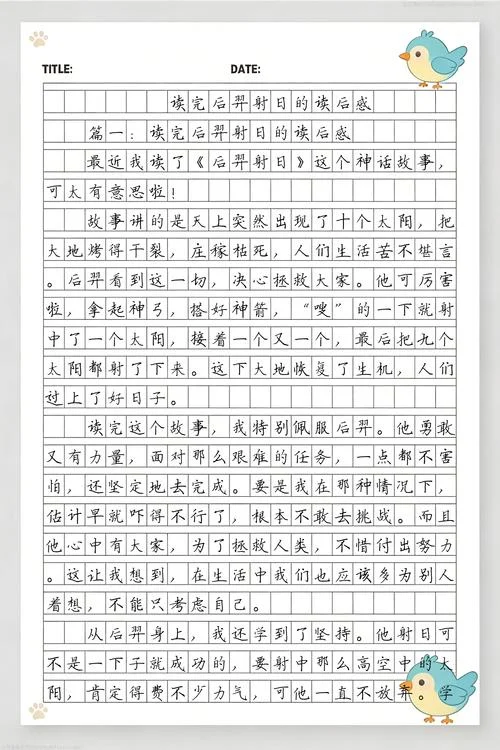 TITLE: DATE:
读完后羿射日的读后感
篇一：读完后羿射日的读后感
最近我读了《后羿射日》这个神话故事，
可太有意思啦！
故事讲的是天上突然出现了十个太阳，把
大地烤得干裂，庄稼枯死，人们生活苦不堪言
。后羿看到这一切，决心拯救大家。他可厉害
啦，拿起神弓，搭好神箭，“嗖”的一下就射
中了一个太阳，接着一个又一个，最后把九个
太阳都射了下来。这下大地恢复了生机，人们
过上了好日子。
读完这个故事，我特别佩服后羿。他勇敢
又有力量，面对那么艰难的任务，一点都不害
怕，还坚定地去完成。要是我在那种情况下，
估计早就吓得不行了，根本不敢去挑战。而且
他心中有大家，为了拯救人类，不惜付出努力
。这让我想到，在生活中我们也应该多为别人
着想，不能只考虑自己。
从后羿身上，我还学到了坚持。他射日可
不是一下子就成功的，要射中那么高空中的太
阳，肯定得费不少力气，可他一直不放弃。学